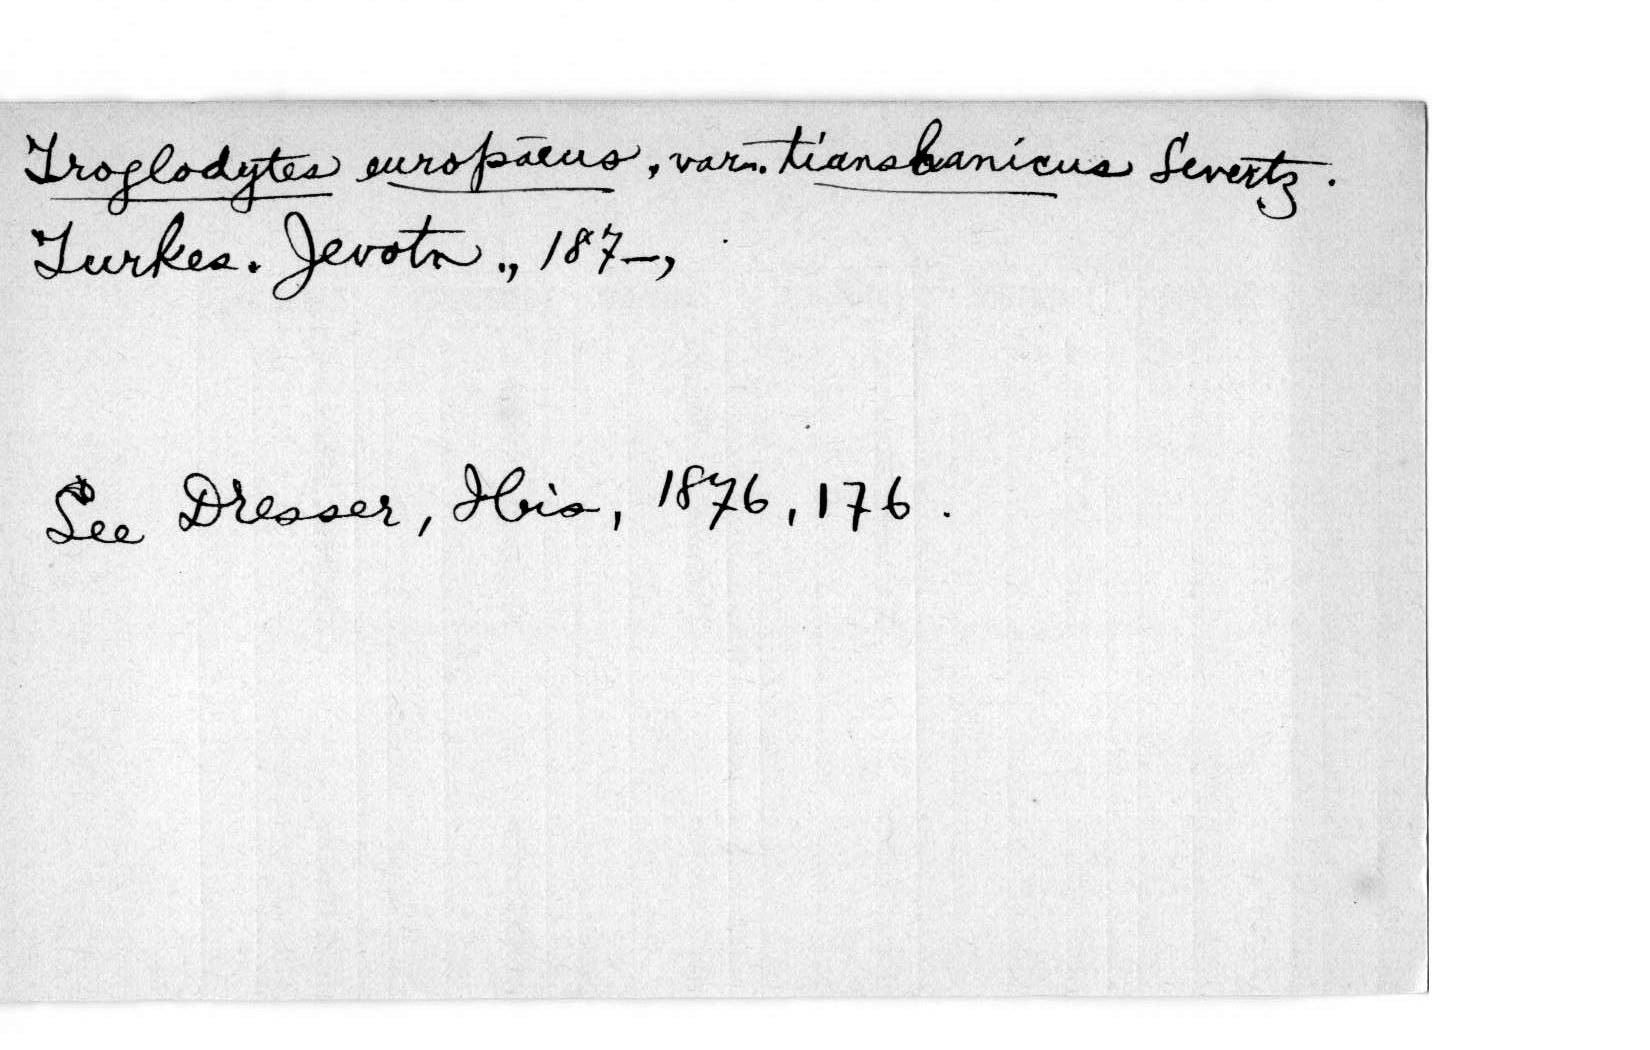 Troglodytes europæus, var. tianshanicus Severtz.
Turkes. Jevotn., 187-,
See Dresser, Ibis, 1876, 176.